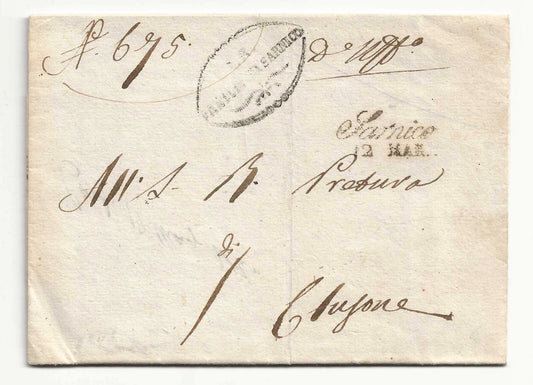 N. 675.
D'Uff.o
SARNICO
Sarnico
12 MAR.
All' I. R. Pretura
di
Clusone